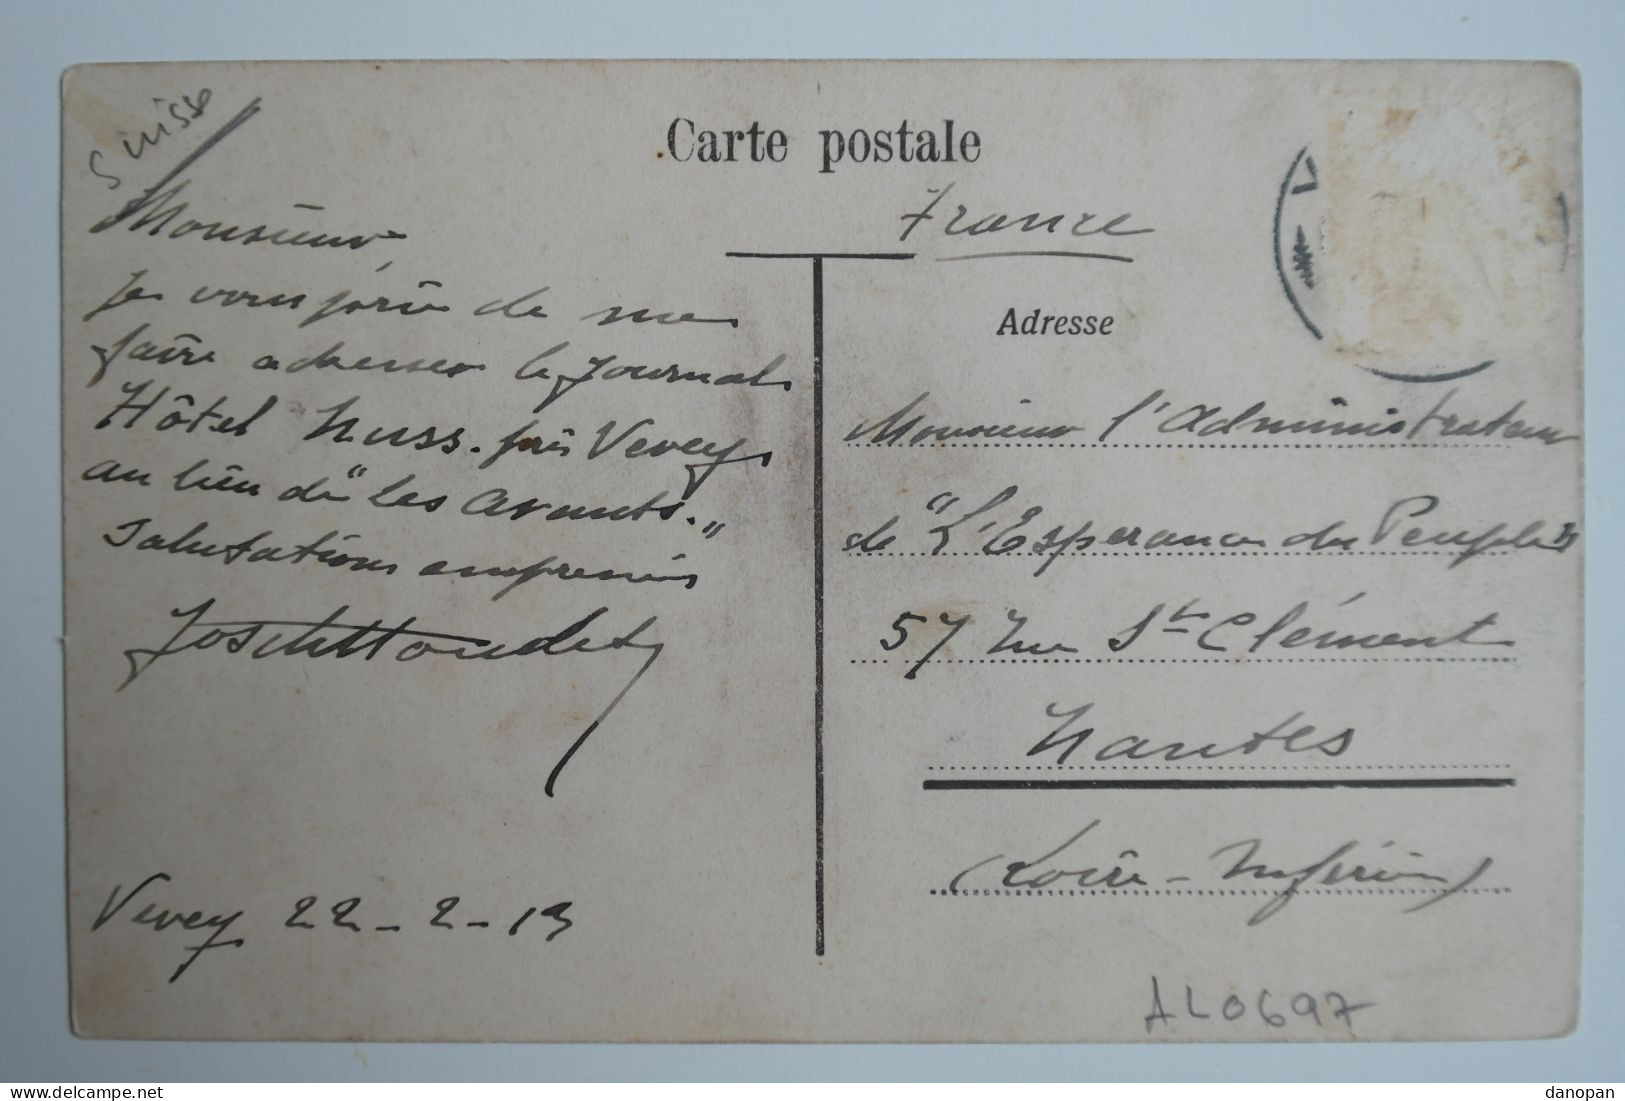 Suisse
Carte postale
Monsieur,
Je vous prie de me
faire adresser le Journal
Hôtel Nuss. près Vevey
au lieu de "les Avants."
Salutations empressées
France
Adresse
Monsieur l'Administrateur
de "L'Espérance du Peuple"
57 rue St Clément
Nantes
(Loire-Inférieure)
Vevey 22-2-13
AL0697
delcampe.net
danopan